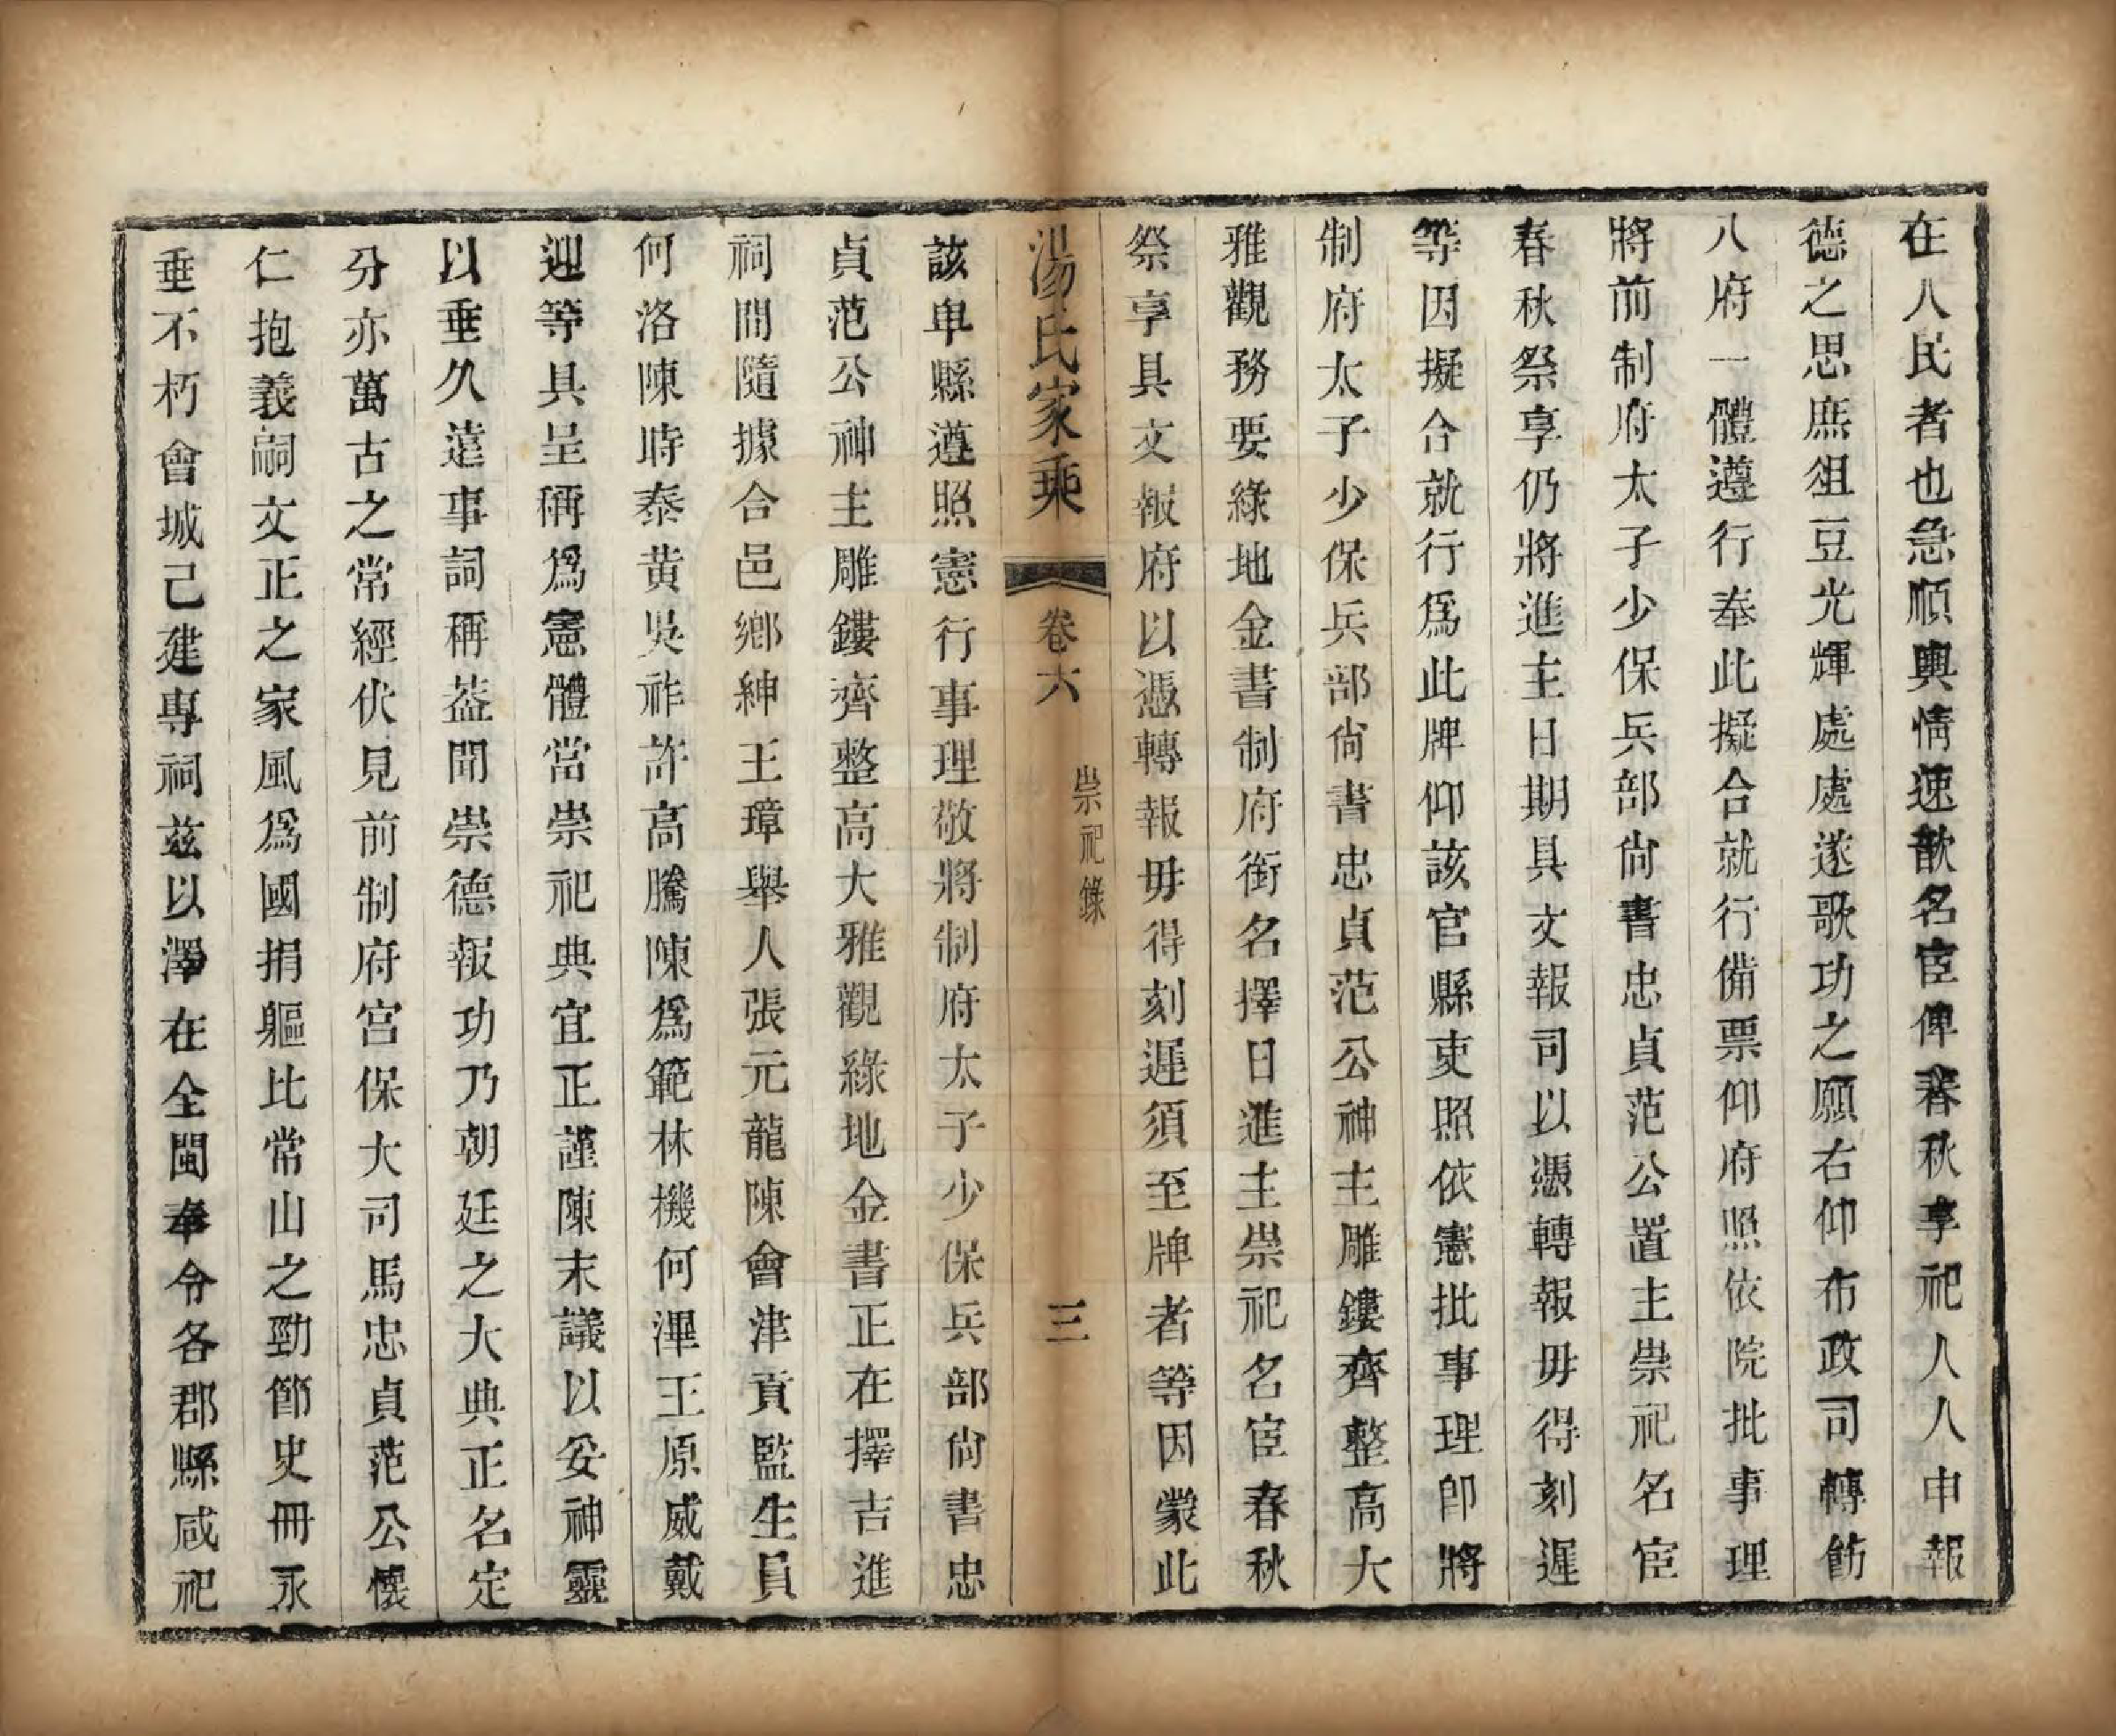 在人民者也急順輿情速歆名宦俾春秋享祀人人申報
德之思庶俎豆光輝處處遂歌功之願右仰布政司轉飭
八府一體遵行奉此擬合就行備票仰府照依院批事理
將前制府太子少保兵部尙書忠貞范公置主崇祀名宦
春秋祭享仍將進主日期具文報司以憑轉報毋得刻遲
等因擬合就行爲此牌仰該官縣吏照依憲批事理卽將
制府太子少保兵部尙書忠貞范公神主雕鏤齊整高大
雅觀務要綠地金書制府銜名擇日進主崇祀名宦春秋
祭享具文報府以憑轉報毋得刻遲須至牌者等因蒙此
湯氏家乘 卷六 崇祀錄 三
該卑縣遵照憲行事理敬將制府太子少保兵部尙書忠
貞范公神主雕鏤齊整高大雅觀綠地金書正在擇吉進
祠間隨據合邑鄉紳王璋舉人張元龍陳會津貢監生員
何洛陳時泰黄吳祚許高騰陳爲範林機何渾王原威戴
迎等具呈稱爲憲體當崇祀典宜正謹陳末議以妥神靈
以垂久遠事詞稱葢聞崇德報功乃朝廷之大典正名定
分亦萬古之常經伏見前制府宫保大司馬忠貞范公懷
仁抱義嗣文正之家風爲國捐軀比常山之勁節史冊永
垂不朽會城己建專祠玆以澤在全閩奉令各郡縣咸祀